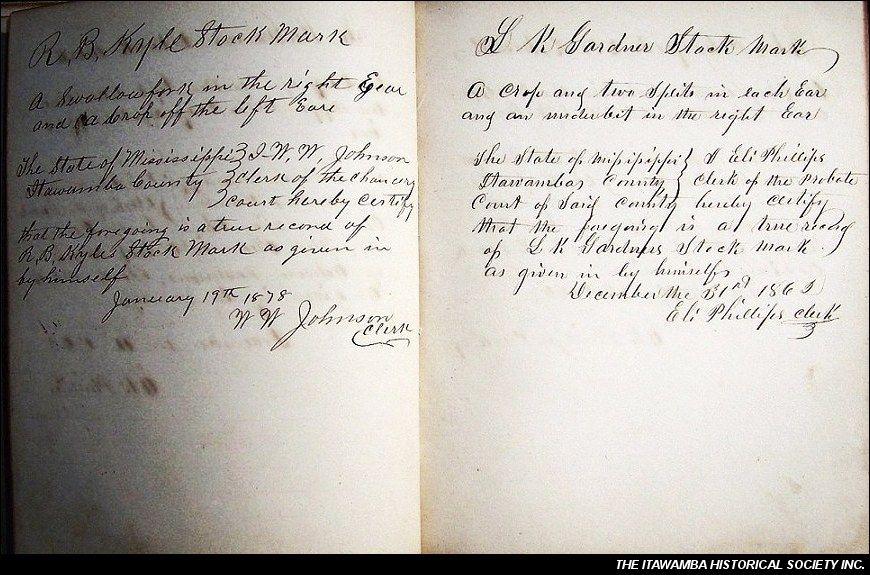 R. B. Kyle Stock Mark
A Swallow fork in the right Ear
and a Crop off the left Eare
The State of Mississippi } I W, W, Johnson
Itawamba County } Clerk of the Chancery
} Court hereby Certify
that the foregoing is a true record of
R, B, Kyles Stock Mark as given in
by himself
January 19th 1878
W W Johnson
Clerk
L K Gardner Stock Mark
A Crop and two Splits in each Ear
and an underbit in the right Ear
The State of Mississippi } I Eli Phillips
Itawambas County } Clerk of the Probate
Court of Said County hereby Certify
that the foregoing is a true record
of L K Gardners Stock Mark
as given in by himself
December the 31st 186
Eli Phillips Clerk
THE ITAWAMBA HISTORICAL SOCIETY INC.